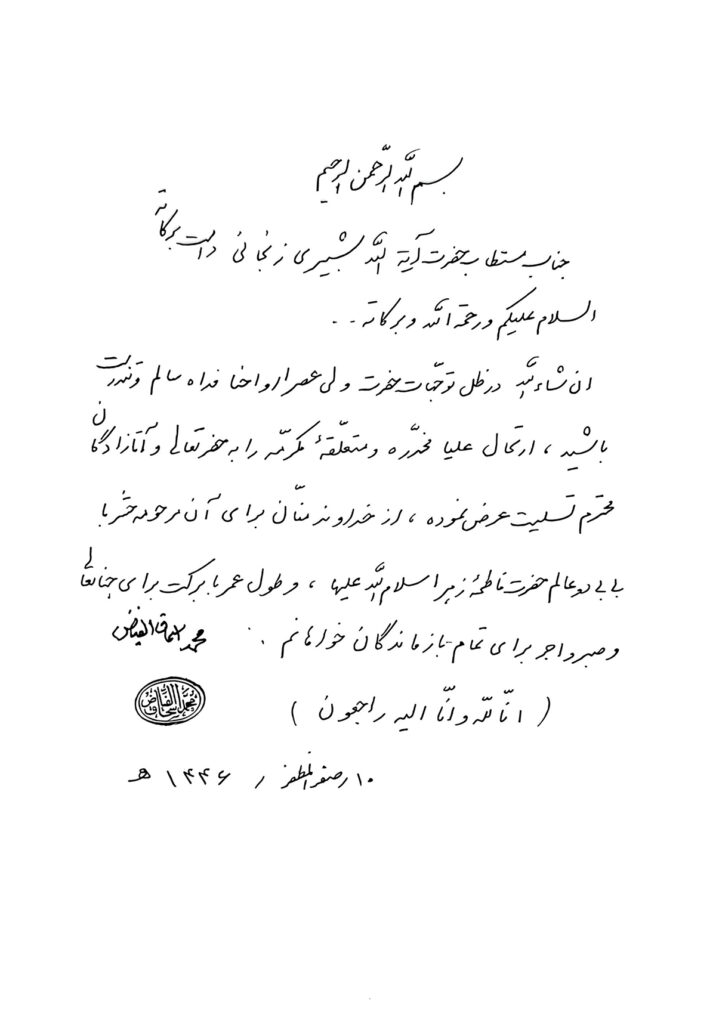 بسم الله الرّحمن الرحیم
جناب مستطاب حضرت آیة الله شبیری زنجانی دامت برکاته
السلام علیکم ورحمة الله وبرکاته . .
ان شاء الله در ظل توجّهات حضرت ولی عصر ارواحنا فداه سالم وتندرست
باشید ، ارتحال علیا مخدّره ومتعلّقهٔ مکرّمه را به حضرتعالی و آقازادگان
محترم تسلیت عرض نموده ، از خداوند منّان برای آن مرحومه حشر با
بی بی دو عالم حضرت فاطمهٔ زهرا سلام الله علیها ، وطول عمر با برکت برای جنابعالی
وصبر واجر برای تمام بازماندگان خواهانم .
محمد اسحاق الفیاض
محمد اسحاق الفیاض
( انّا لله وانّا الیه راجعون )
١٠ / صفر المظفر / ١٤٤٦ هـ